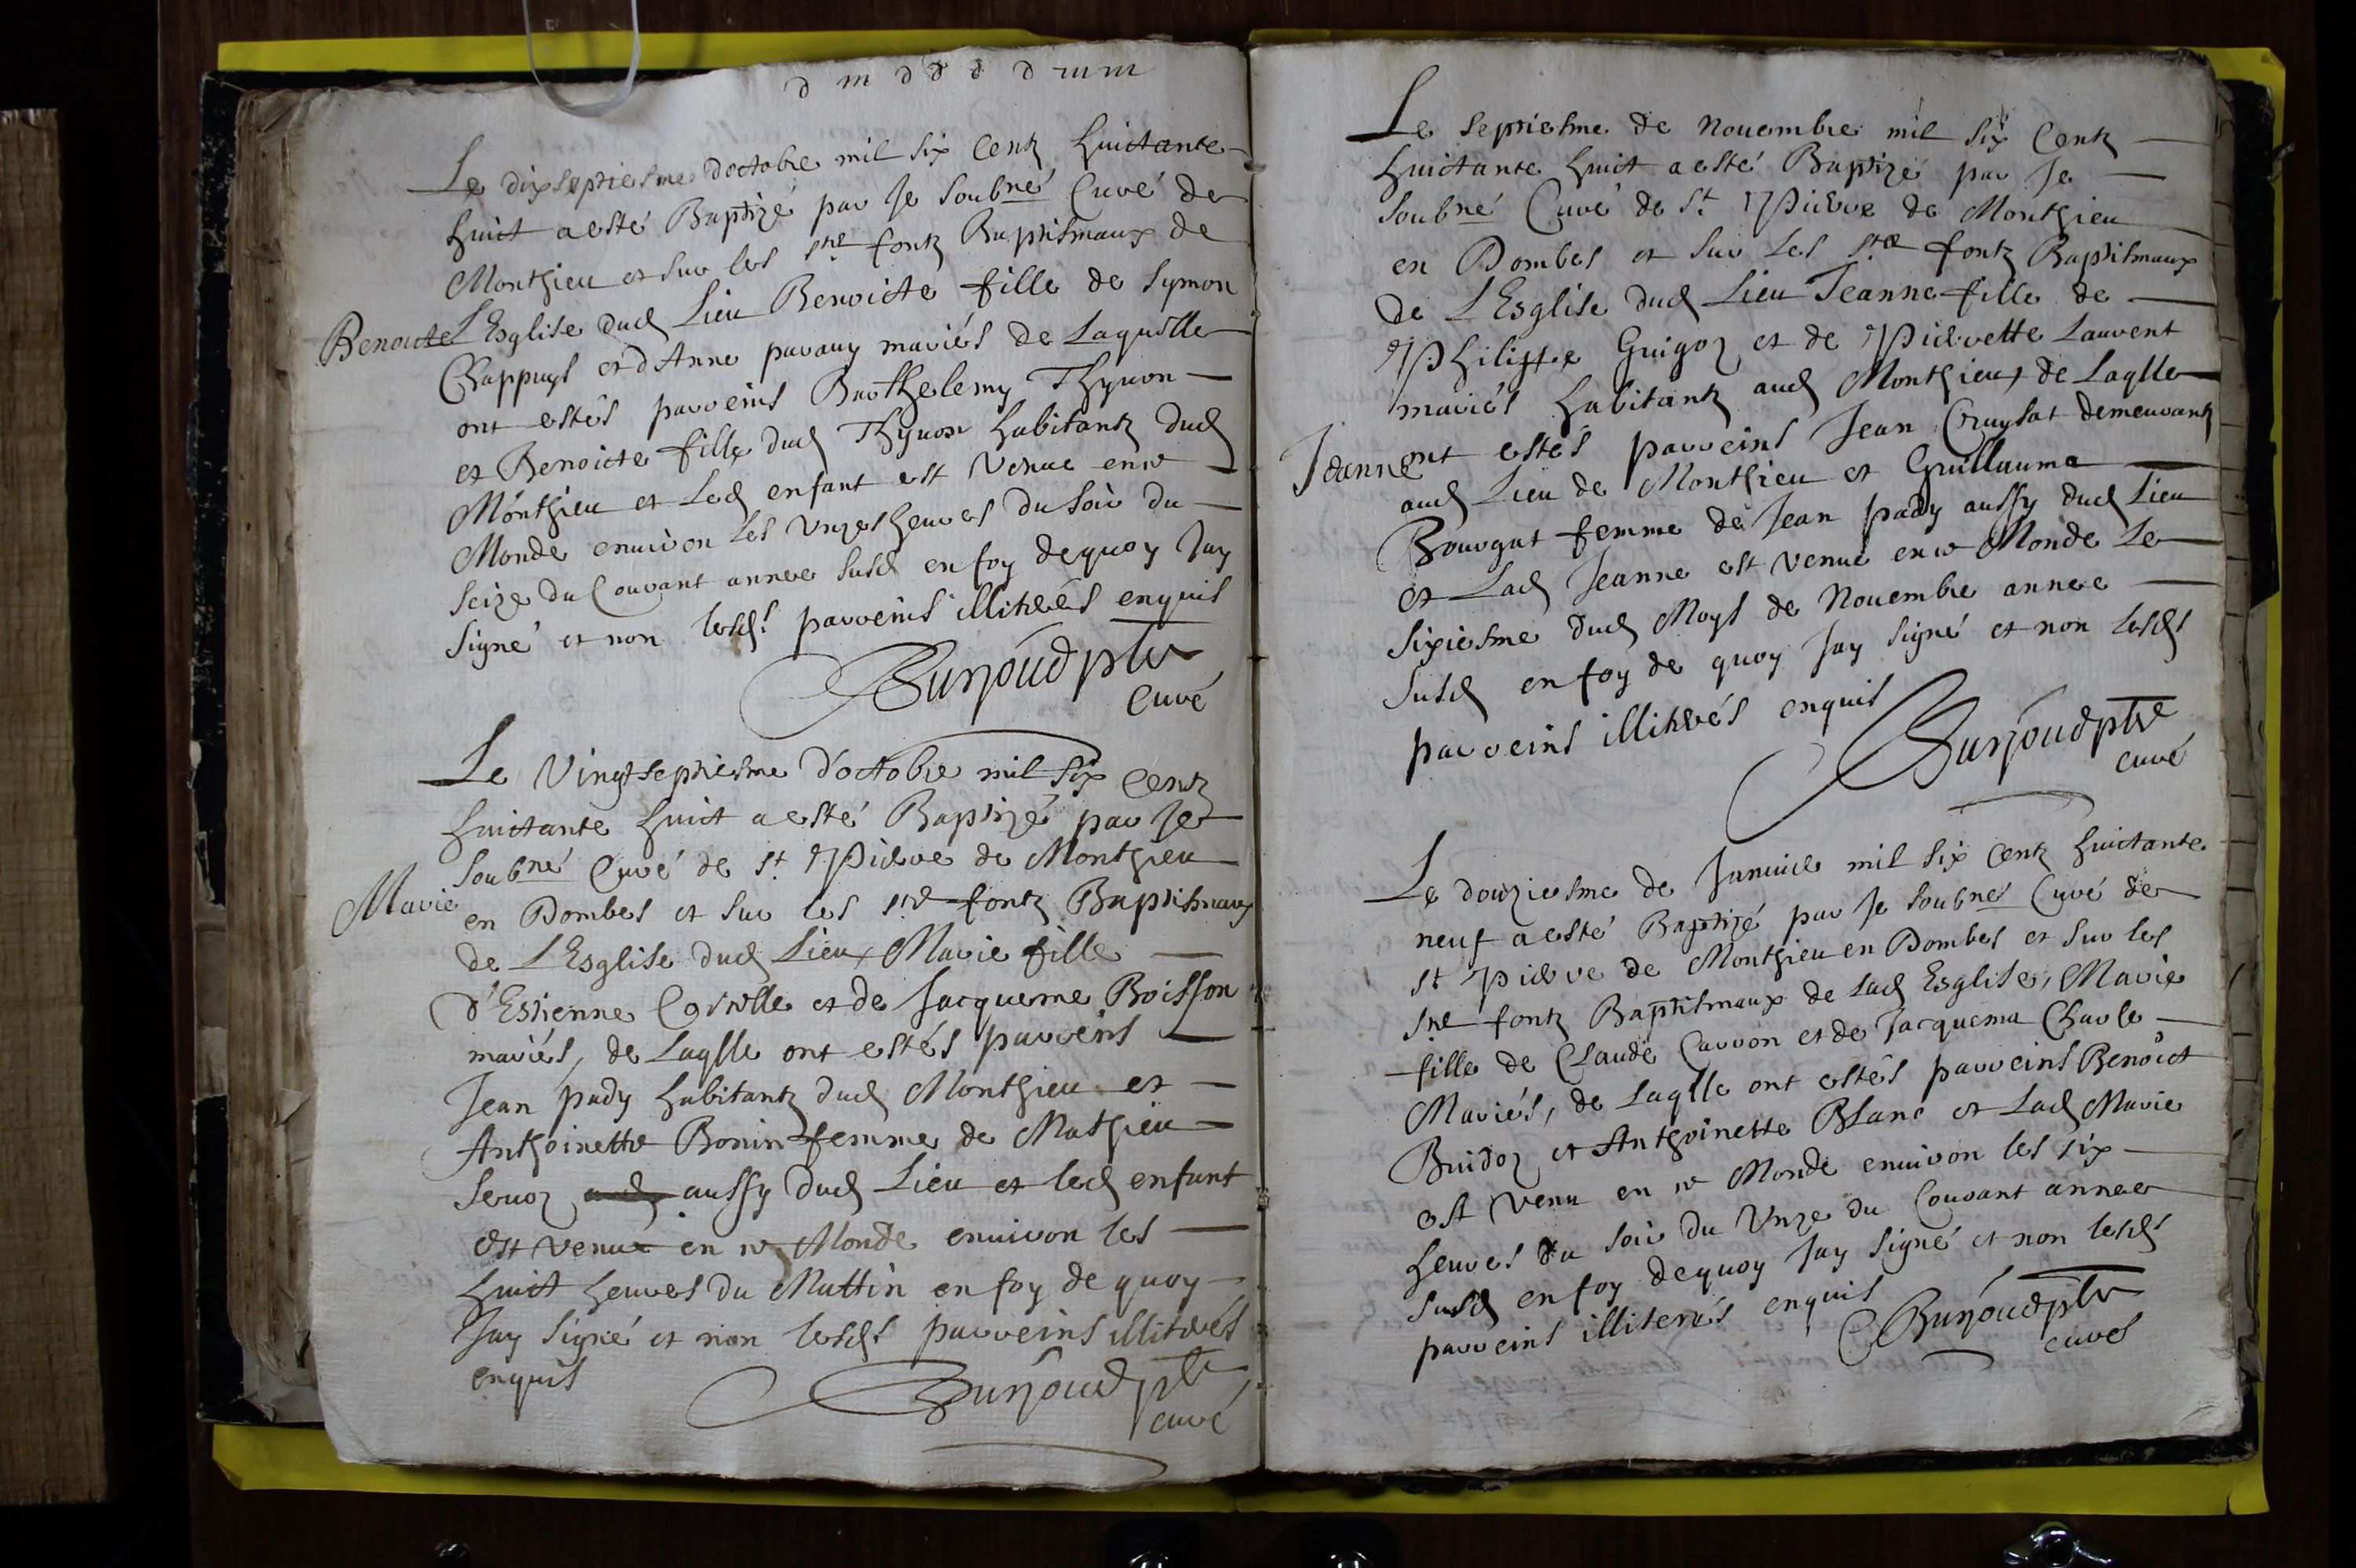 d m d d d d m m
Le dixseptiesme doctobre mil six Centz huictante
huict a esté Baptizé par Je soubné Curé de
Monthieu et sur les stz fontz Baptismaux de
Benoicte
L'Esglise dud Lieu Benoicte fille de Symon
Chappuys et d'Anne paravy mariés de Laquelle
ont estés parreins Barthelemy Thyvon
et Benoicte fille dud Thyvon habitantz dud
Monthieu et Led enfant est Venue en ce
Monde environ les Vnzes heures du soir du
seize du Courant annee susd en foy dequoy Jay
signé et non lesds parreins illiterés enquis
Burjoud ptre
curé
Le Vingtseptiesme d'octobre mil six Centz
huictante huict a esté Baptizé par Je
soubné Curé de st Pierre de Monthieu
Marie
en Dombes et sur les stz fontz Baptismaux
de L'Esglise dud Lieu, Marie fille
d'Estienne Cosselle et de Jacqueme Boisson
mariés, de Laqlle ont estés parreins
Jean pady habitantz dud Monthieu et
Anthoinette Bonin femme de Mathieu
Servoz aussy dud Lieu et led enfant
est venue en ce Monde environ les
huict heures du Mattin en foy de quoy
Jay signé et non lesds parreins illiterés
enquis
Burjoud ptre
curé
Le septiesme de Novembre mil six Centz
huictante huict a esté Baptizé par Je
soubné Curé de st Pierre de Monthieu
en Dombes et sur Les stz fontz Baptismaux
de L'Esglise dud Lieu Jeanne fille de
Philippe Guigoz et de Pierrette Laurent
mariés habitantz aud Monthieu, de Laqlle
Jeanne
ont estés parreins Jean Cruysat demeurantz
aud Lieu de Monthieu et Guillauma
Bourgat femme de Jean pady aussy dud Lieu
et Lad Jeanne est venue en ce Monde Le
sixiesme dud Moys de Novembre annee
susd en foy de quoy Jay signé et non lesds
parreins illiterés enquis
Burjoud ptre
curé
Le douziesme de Janvier mil six Centz huictante
neuf a esté Baptizé par Je soubné Curé de
st Pierre de Monthieu en Dombes et sur les
stz fontz Baptismaux de lad Esglise, Marie
fille de Claude Carron et de Jacquema Charle
Mariés, de Laqlle ont estés parreins Benoict
Buidoz et Anthoinette Blanc et Lad Marie
est venu en ce Monde environ les six
heures du soir du Vnze du Courant annee
susd en foy dequoy Jay signé et non lesds
parreins illiterés enquis
Burjoud ptre
curé